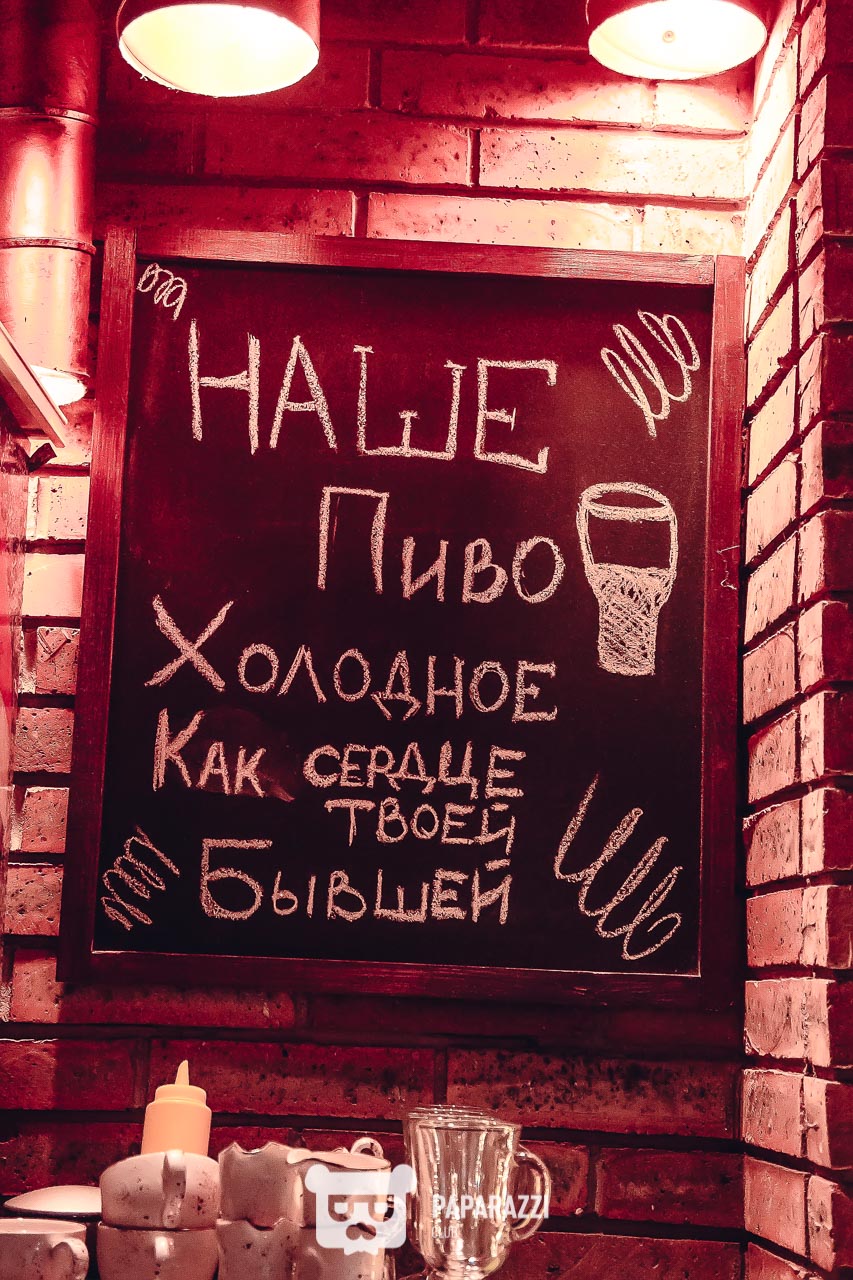 НАШЕ
Пиво
Холодное
Как сердце
твоей
Бывшей
PAPARAZZI
CLUB